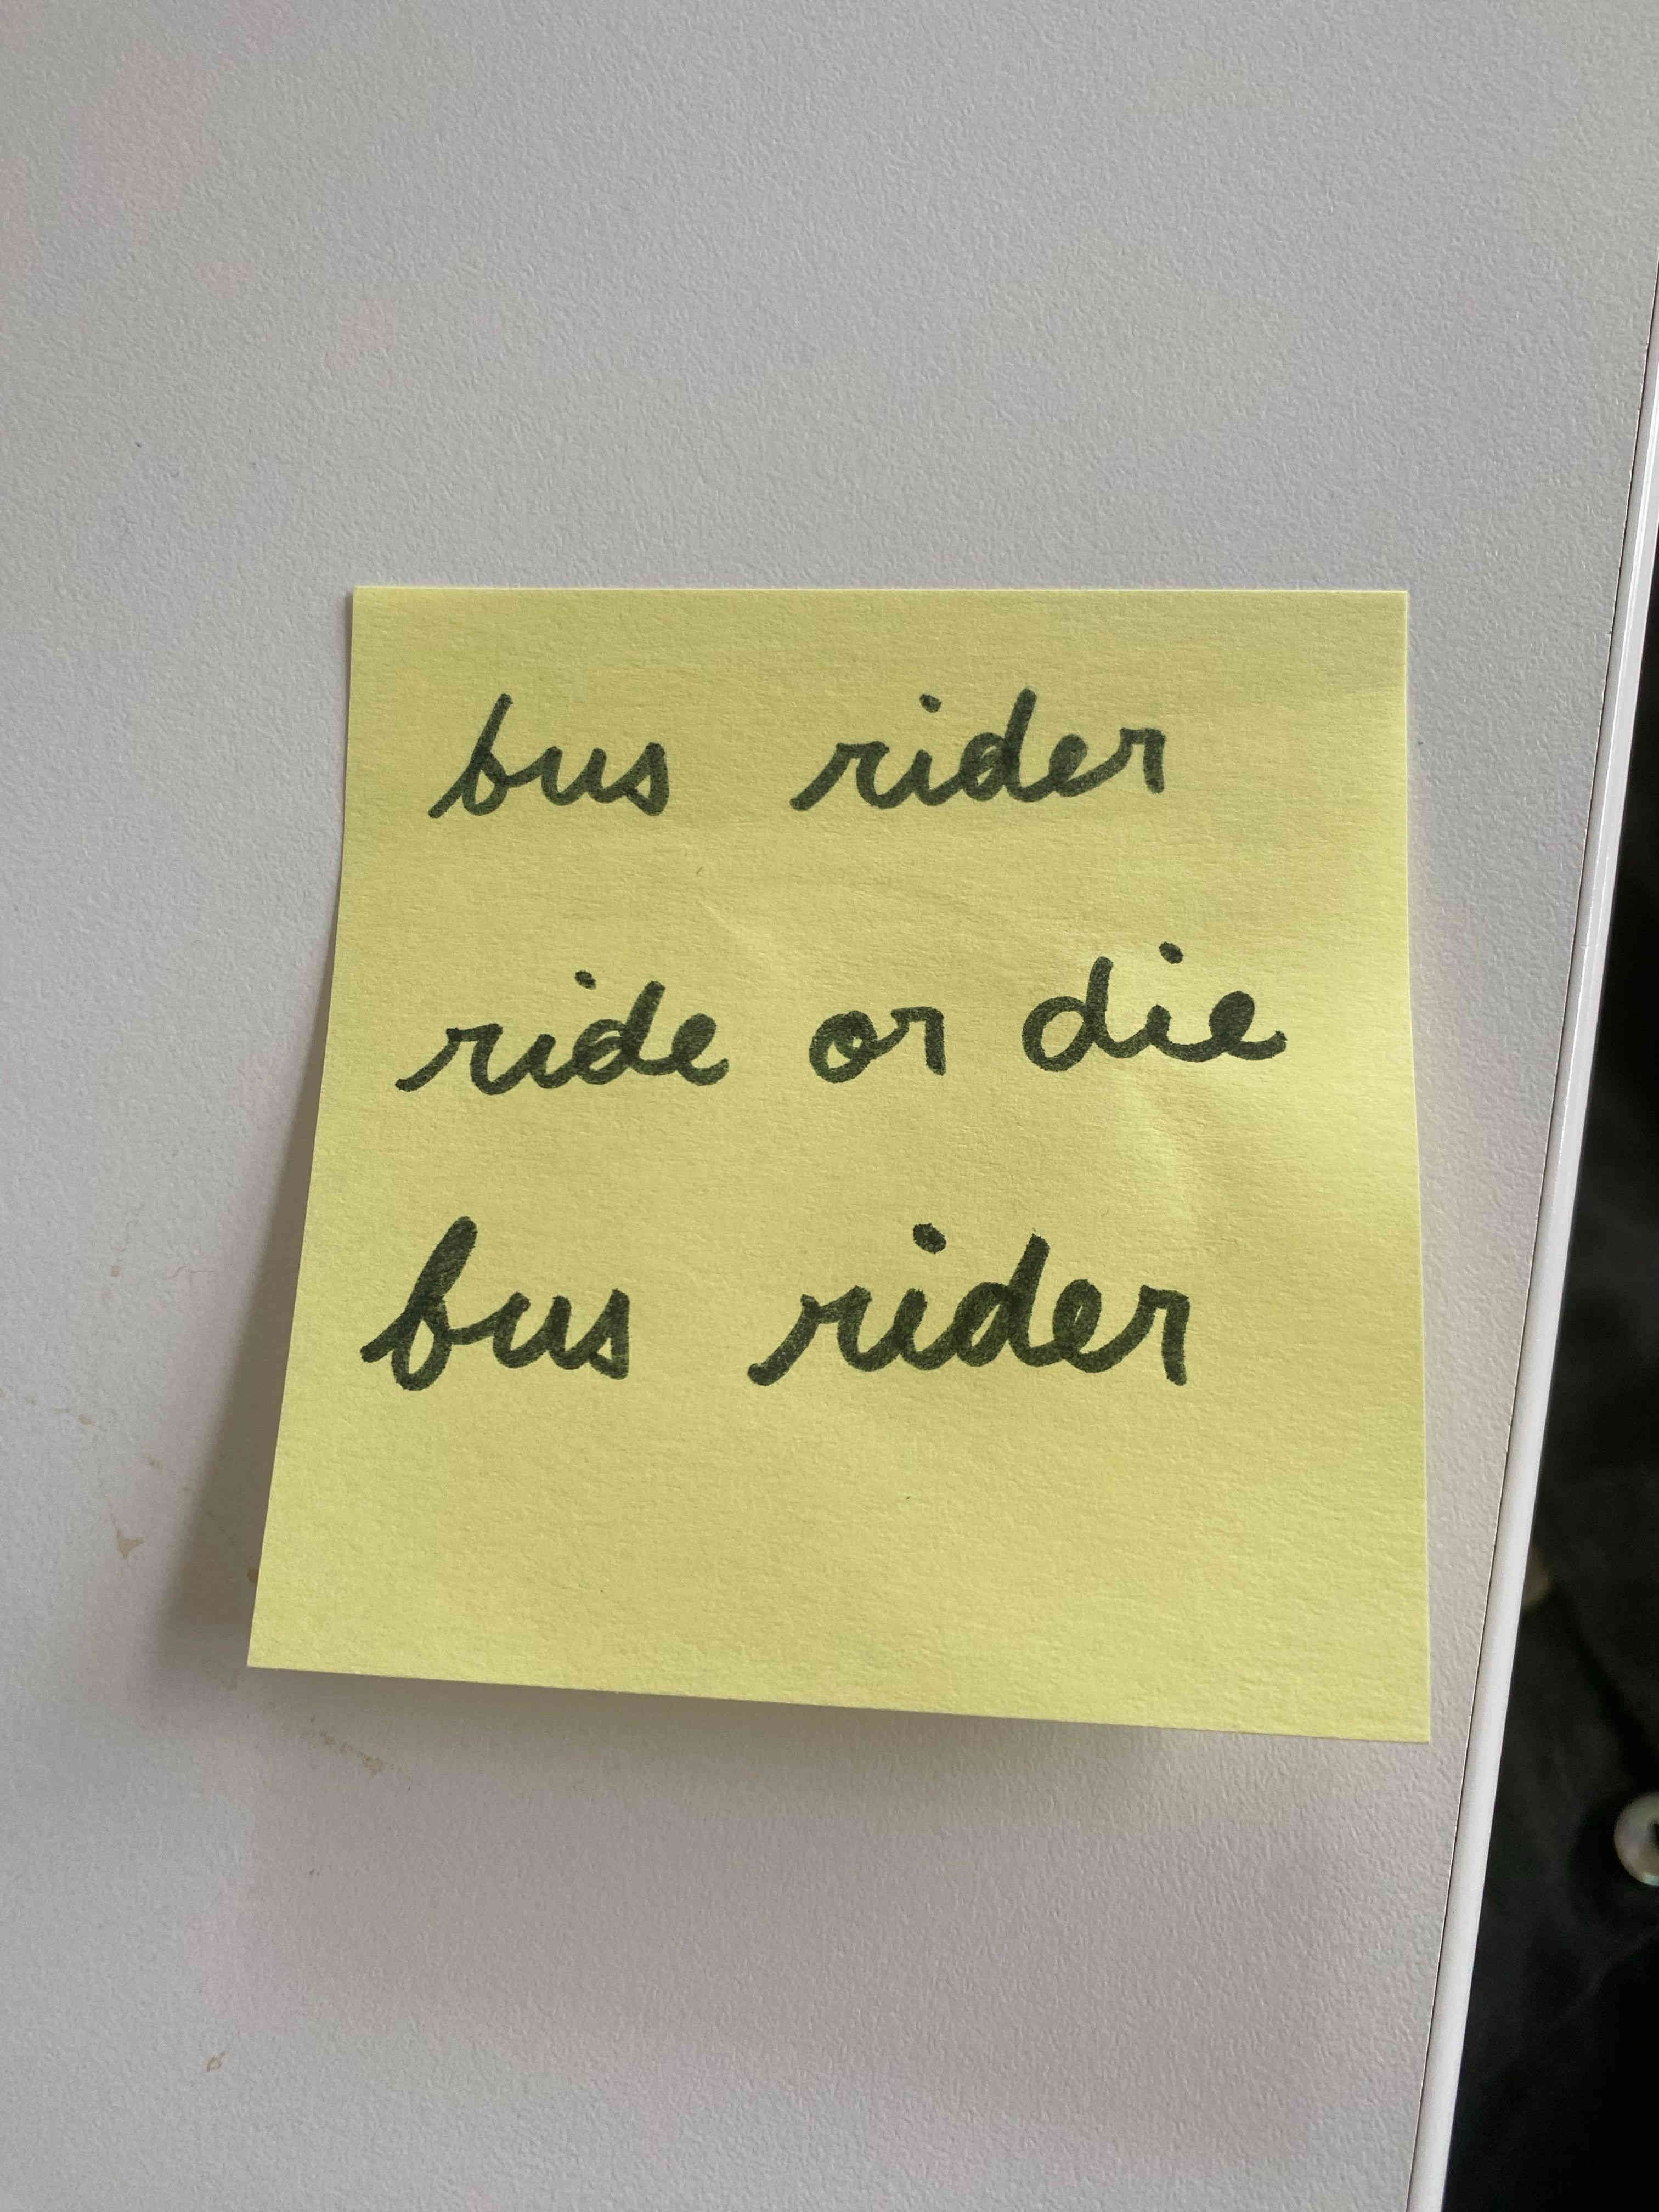 bus rider
ride or die
bus rider